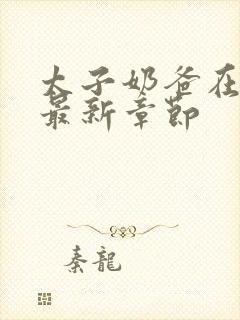 太子奶爸在
最新章节
秦龍